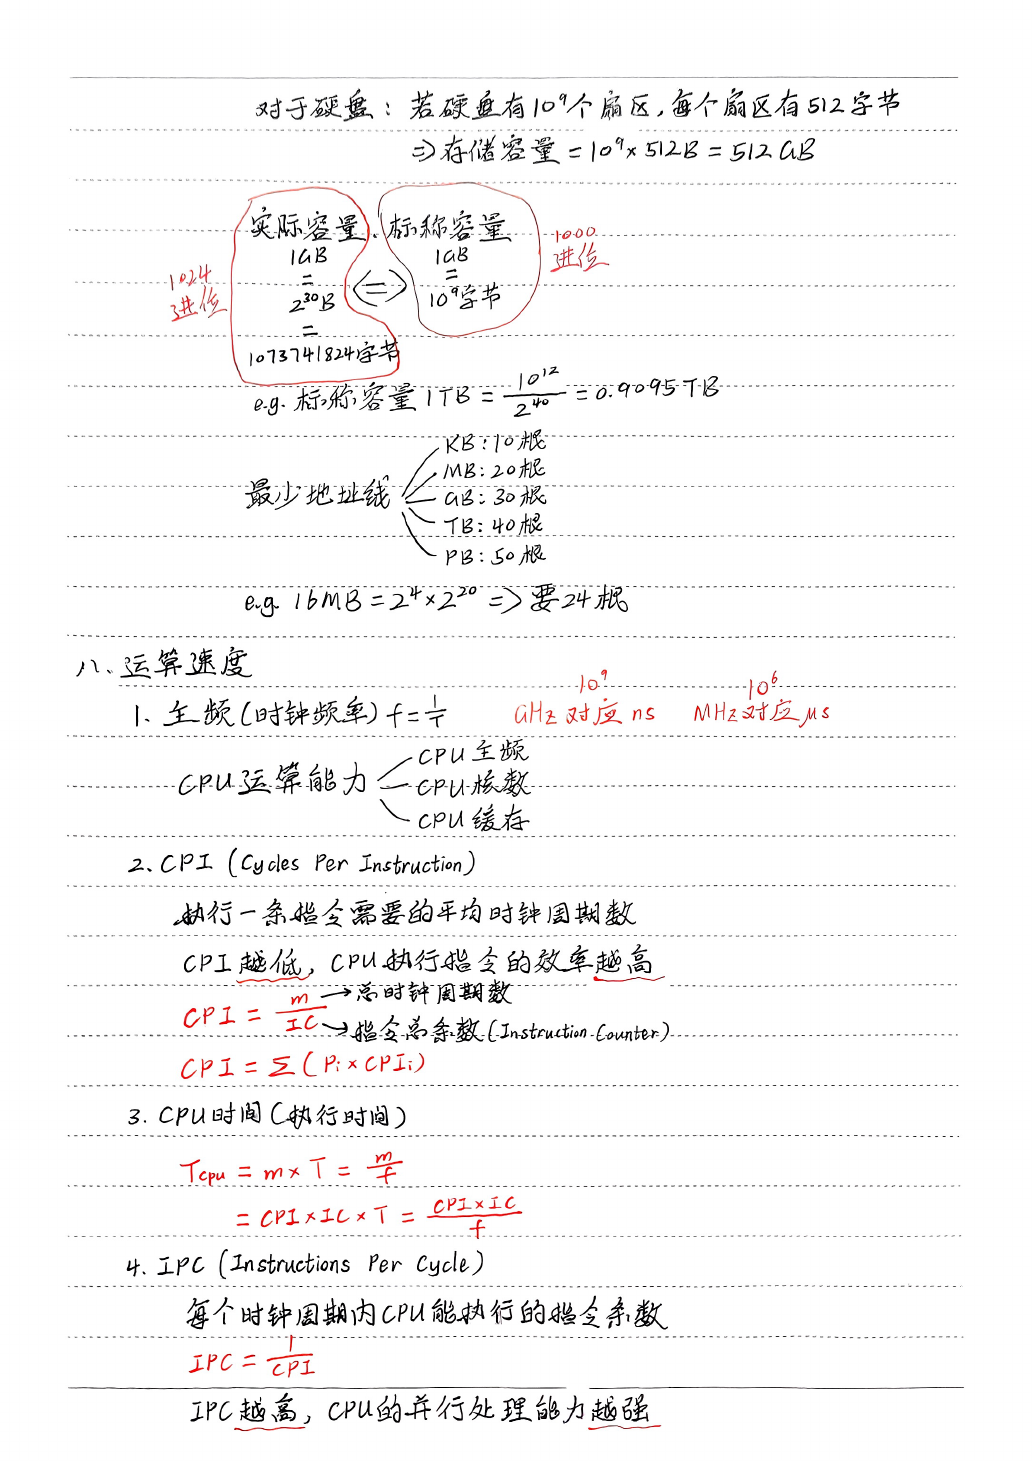 对于硬盘：若硬盘有10⁹个扇区，每个扇区有512字节
⇒存储容量=10⁹×512B=512GB
实际容量、标称容量
1GB
=
2³⁰B
=
1073741824字节
1024
进位
⇔
1GB
=
10⁹字节
1000
进位
e.g. 标称容量1TB=10¹²/2⁴⁰=0.9095TB
最少地址线
KB:10根
MB:20根
GB:30根
TB:40根
PB:50根
e.g. 16MB=2⁴×2²⁰⇒要24根
八、运算速度
1、主频(时钟频率) f=1/T
10⁹
GHz对应ns
10⁶
MHz对应μs
CPU运算能力
CPU主频
CPU核数
CPU缓存
2、CPI (Cycles Per Instruction)
执行一条指令需要的平均时钟周期数
CPI越低，CPU执行指令的效率越高
CPI=m/IC
→总时钟周期数
→指令总条数(Instruction Counter)
CPI=Σ(Pi×CPIi)
3. CPU时间(执行时间)
Tcpu=m×T=m/f
=CPI×IC×T=CPI×IC/f
4. IPC (Instructions Per Cycle)
每个时钟周期内CPU能执行的指令条数
IPC=1/CPI
IPC越高，CPU的并行处理能力越强